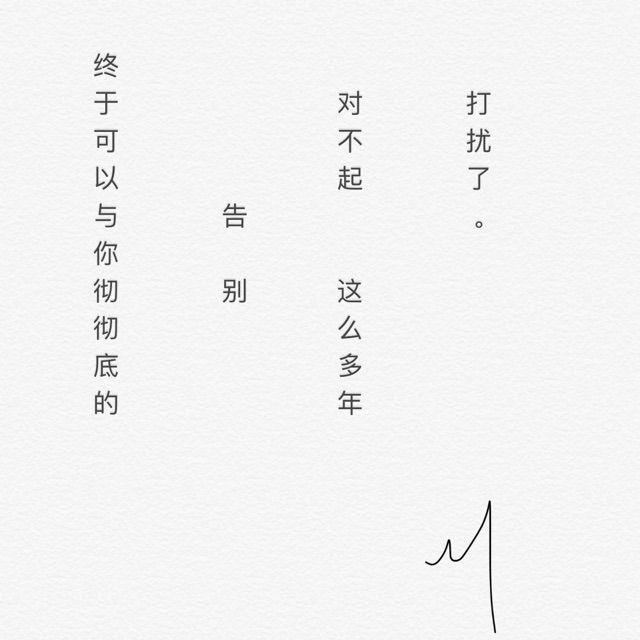 终于可以与你彻彻底的
告 别
对不起 这么多年
打扰了。